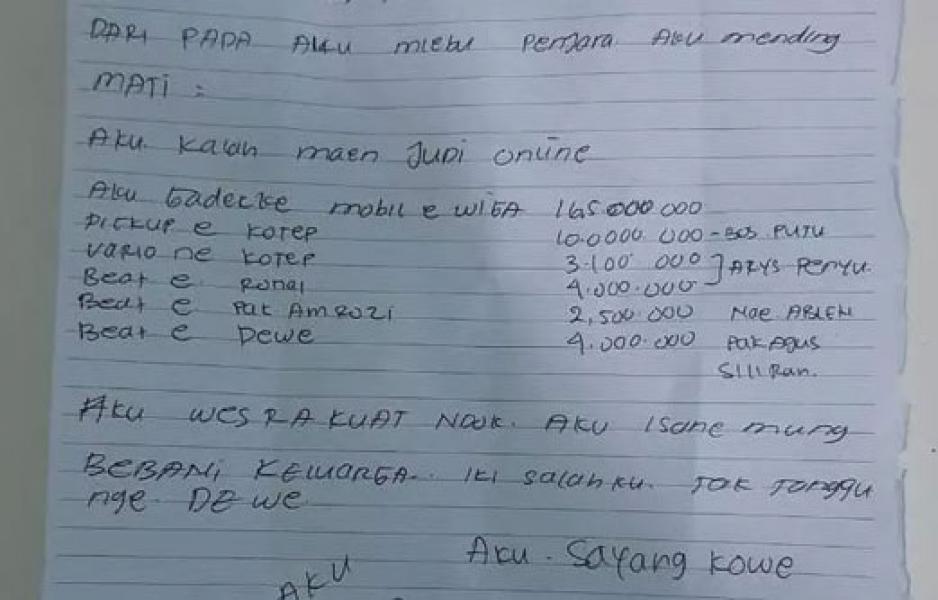 DARI PADA AKU MLEBU PENJARA AKU mending
MATI :
AKU KALAH maen JUDI online
AKU GADEKKE mobil e WIGA 165 000 000
PICKUP e KOTEP 10.0000 000 - BOS PUTU
VARIO ne KOTEP 3.100 000 ] ARYS PENYU
Beat e RONAL 4.000.000
Beat e Pak AMROZI 2,500 000 NOE
Beat e Dewe 4.000.000 Pak Agus
SIIIRan.
AKU WES RA KUAT NOOK. AKU ISONE mung
BEBANI KELUARGA. IKI SALAHKU. TAK TONGGU
nge DEWE
AKU . Sayang Kowe
AKU